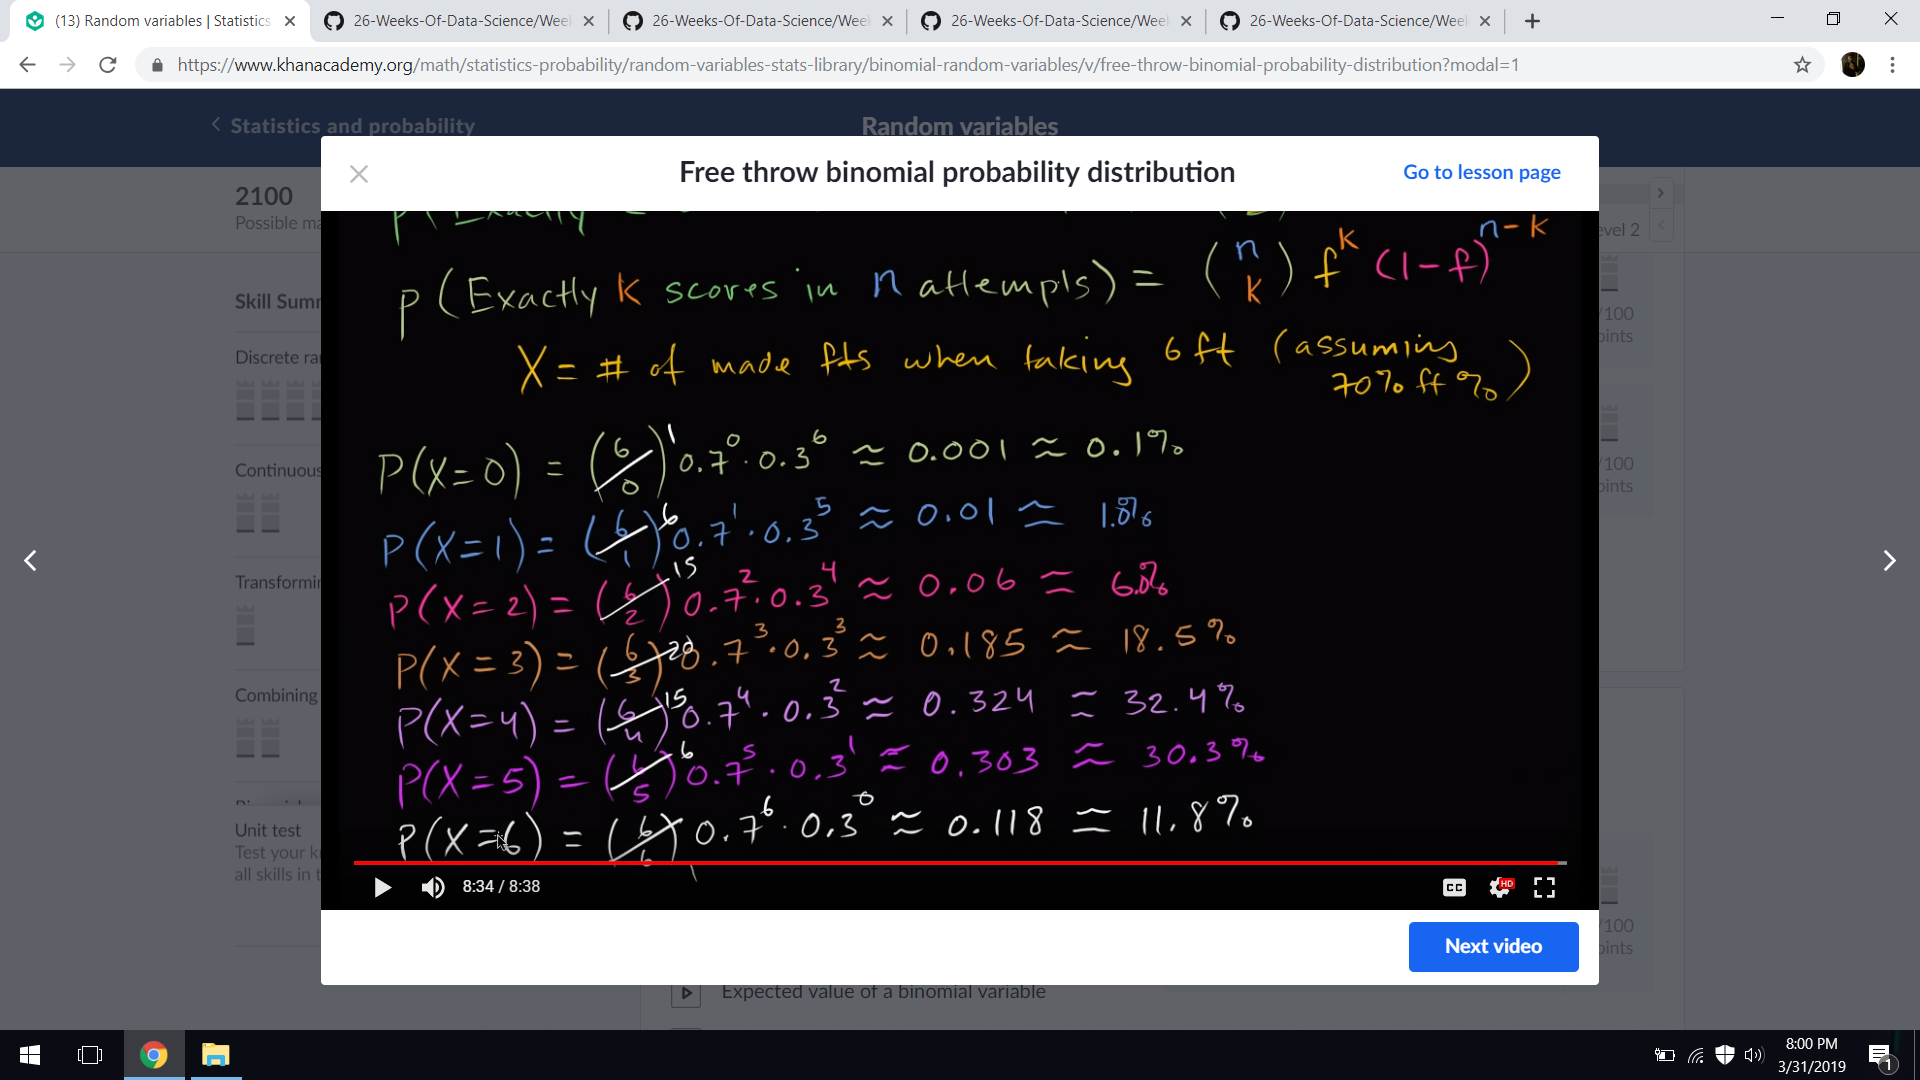 (13) Random variables | Statistics
26-Weeks-Of-Data-Science/Wee
26-Weeks-Of-Data-Science/Wee
26-Weeks-Of-Data-Science/Wee
26-Weeks-Of-Data-Science/Wee
https://www.khanacademy.org/math/statistics-probability/random-variables-stats-library/binomial-random-variables/v/free-throw-binomial-probability-distribution?modal=1
Statistics and probability
Random variables
Free throw binomial probability distribution
Go to lesson page
2100
Possible ma
evel 2
Skill Summ
Discrete ra
Continuous
Transformin
Combining
Unit test
Test your k
all skills in t
/100
oints
/100
oints
/100
oints
P(Exactly k scores in n attempts) = (n k) f^k (1-f)^n-k
X = # of made fts when taking 6 ft (assuming
70% ft %)
P(X=0) = (6 0) 1 0.7^0 · 0.3^6 ≈ 0.001 ≈ 0.1%
P(X=1) = (6 1) 6 0.7^1 · 0.3^5 ≈ 0.01 ≈ 1.0%
P(X=2) = (6 2) 15 0.7^2 · 0.3^4 ≈ 0.06 ≈ 6.0%
P(X=3) = (6 3) 20 0.7^3 · 0.3^3 ≈ 0.185 ≈ 18.5%
P(X=4) = (6 4) 15 0.7^4 · 0.3^2 ≈ 0.324 ≈ 32.4%
P(X=5) = (6 5) 6 0.7^5 · 0.3^1 ≈ 0.303 ≈ 30.3%
P(X=6) = (6 6) 0.7^6 · 0.3^0 ≈ 0.118 ≈ 11.8%
8:34 / 8:38
CC
HD
Next video
Expected value of a binomial variable
8:00 PM
3/31/2019
1